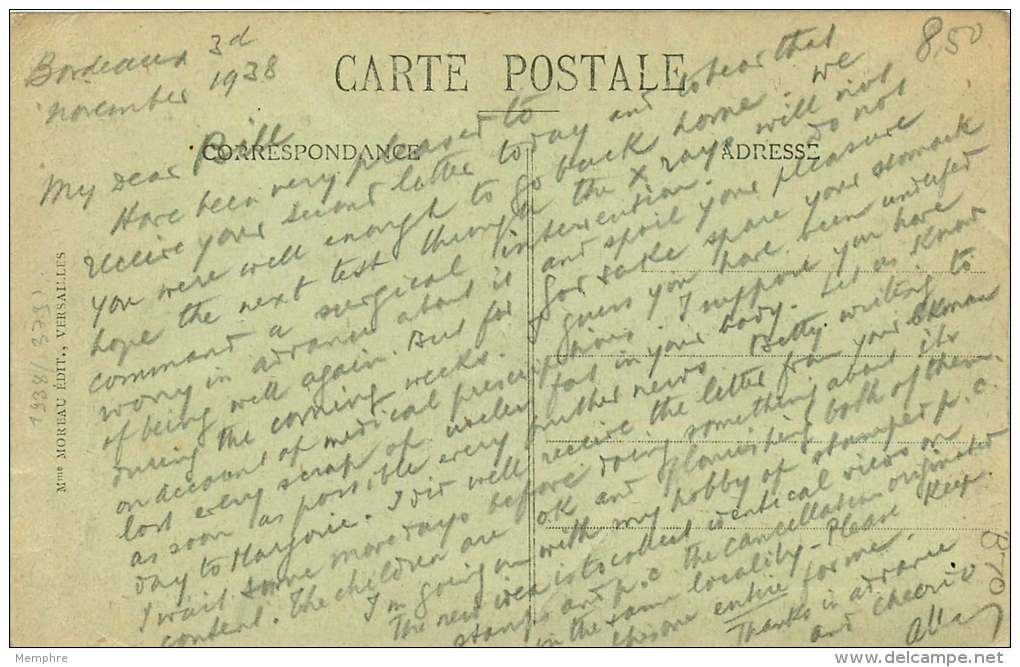 8,50
Bordeaux 3d
november 1938
CARTE POSTALE
CORRESPONDANCE
ADRESSE
My dear Bill
Have been very pleased to
receive your second letter today and to hear that
you were well enough to go back home. We
hope the next test through the X rays will not
command a surgical intervention. Do not
worry in advance about it and spoil your pleasure
of being well again. But for God sake spare your stomack
during the coming weeks. I guess you have been underfed
on account of medical prescriptions. I suppose you have
lost every scrap of useless fat in your body. Let us know
as soon as possible every further news. Betty writing to
day to Marjorie. I did well receive the letter from your
I wait some more days before doing something about it
content. The children are OK and flourishing both of them.
I'm going on with my hobby of stamped p.c.
The new idea is to collect identical views on
stamps and p.c. the cancellation originated
in the same locality - Please Keep
this one entire for me.
Thanks in advance
and cheerio
1938/379
Mme MOREAU ÉDIT., VERSAILLES
B70
Memphre
delcampe.net